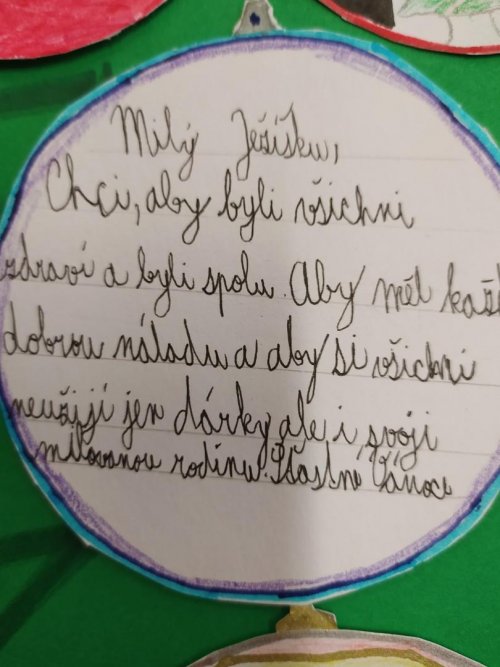 Milý Ježíšku,
Chci, aby byli všichni
zdraví a byli spolu. Aby měl každ
dobrou náladu a aby si všichni
neužijí jen dárky ale i svoji
milovanou rodinu. Šťastné Vánoce